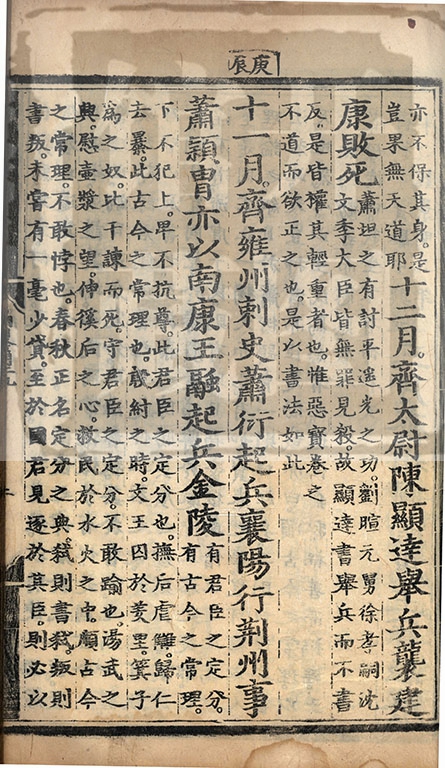 庚辰
亦不保其身。是
豈果無天道耶
十二月。齊太尉陳顯達舉兵襲建
康敗死
蕭坦之有討平遙光之功。劉暄元舅徐孝嗣沈
文季大臣皆無罪見殺。故顯達書舉兵而不書
反。是皆權其輕重者也。惟惡寶卷之
不道而欲正之也。是以書法如此
十一月。齊雍州刺史蕭衍起兵襄陽行荊州事
蕭穎冑亦以南康王融起兵金陵
有君臣之定分。
有古今之常理。
下不犯上。卑不抗尊。此君臣之定分也。撫后虐讎。歸仁
去暴。此古今之常理也。殷紂之時。文王囚於羑里。箕子
為之奴。比干諫而死。守君臣之定分。不敢踰也。湯武之
典。慰壺漿之望。伸徯后之心。救民於水火之中。順古今
之常理。不敢悖也。春秋正名定分之典。弒則書弒。叛則
書叛。未嘗有一毫少貸。至於國君見逐於其臣。則必以